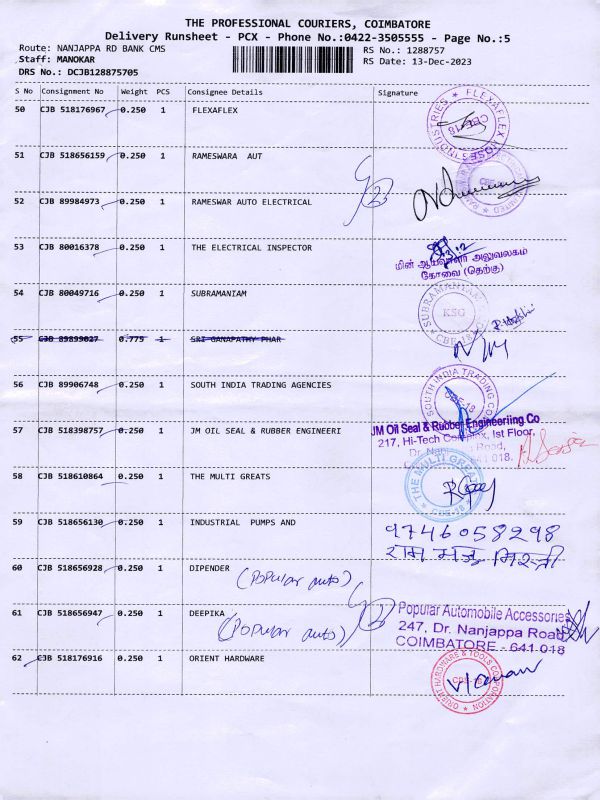 THE PROFESSIONAL COURIERS, COIMBATORE
Delivery Runsheet - PCX - Phone No.:0422-3505555 - Page No.:5
Route: NANJAPPA RD BANK CMS
RS No.: 1288757
Staff: MANOKAR
RS Date: 13-Dec-2023
DRS No.: DCJB128875705
S No Consignment No Weight PCS Consignee Details Signature
50 CJB 518176967 0.250 1 FLEXAFLEX
FLEXAFLEX HOSE INDUSTRIES
CBE-18
51 CJB 518656159 0.250 1 RAMESWARA AUT
CBE-18
52 CJB 89984973 0.250 1 RAMESWAR AUTO ELECTRICAL
53 CJB 80016378 0.250 1 THE ELECTRICAL INSPECTOR
மின் ஆய்வாளர் அலுவலகம்
கோவை (தெற்கு)
54 CJB 80049716 0.250 1 SUBRAMANIAM
KSG
CBE-18
55 CJB 89899027 0.775 1 SRI GANAPATHY PHAR
56 CJB 89906748 0.250 1 SOUTH INDIA TRADING AGENCIES
SOUTH INDIA TRADING
CBE-18
57 CJB 518398757 0.250 1 JM OIL SEAL & RUBBER ENGINEERI
JM Oil Seal & Rubber Engineeriing Co
217, Hi-Tech Complex, Ist Floor,
Dr. Nanjappa Road,
641 018.
58 CJB 518610864 0.250 1 THE MULTI GREATS
THE MULTI GREATS
CBE-18
59 CJB 518656130 0.250 1 INDUSTRIAL PUMPS AND
9746058298
60 CJB 518656928 0.250 1 DIPENDER
(Popular auto)
61 CJB 518656947 0.250 1 DEEPIKA
(Popular auto)
Popular Automobile Accessories
247, Dr. Nanjappa Road
COIMBATORE - 641 018
62 CJB 518176916 0.250 1 ORIENT HARDWARE
ORIENT HARDWARE & TOOLS CORPORATION
CBE-18